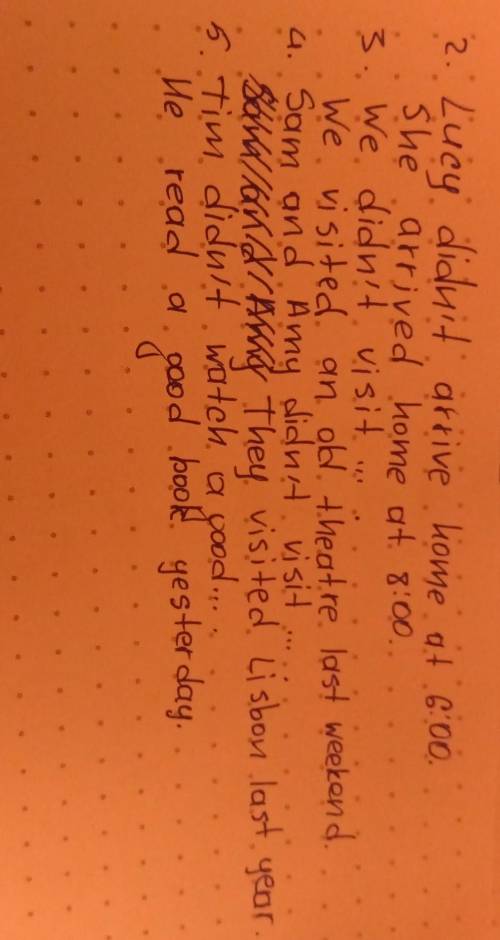 2. Lucy didn't arrive home at 6:00.
She arrived home at 8:00.
3. We didn't visit ...
We visited an old theatre last weekend.
4. Sam and Amy didn't visit ...
They visited Lisbon last year.
5. Tim didn't watch a good....
He read a good book yesterday.